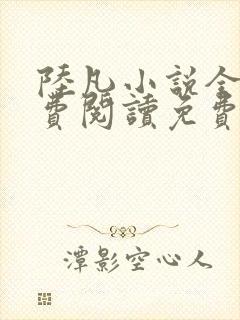 陸凡小說全
費閱讀免費
潭影空心人